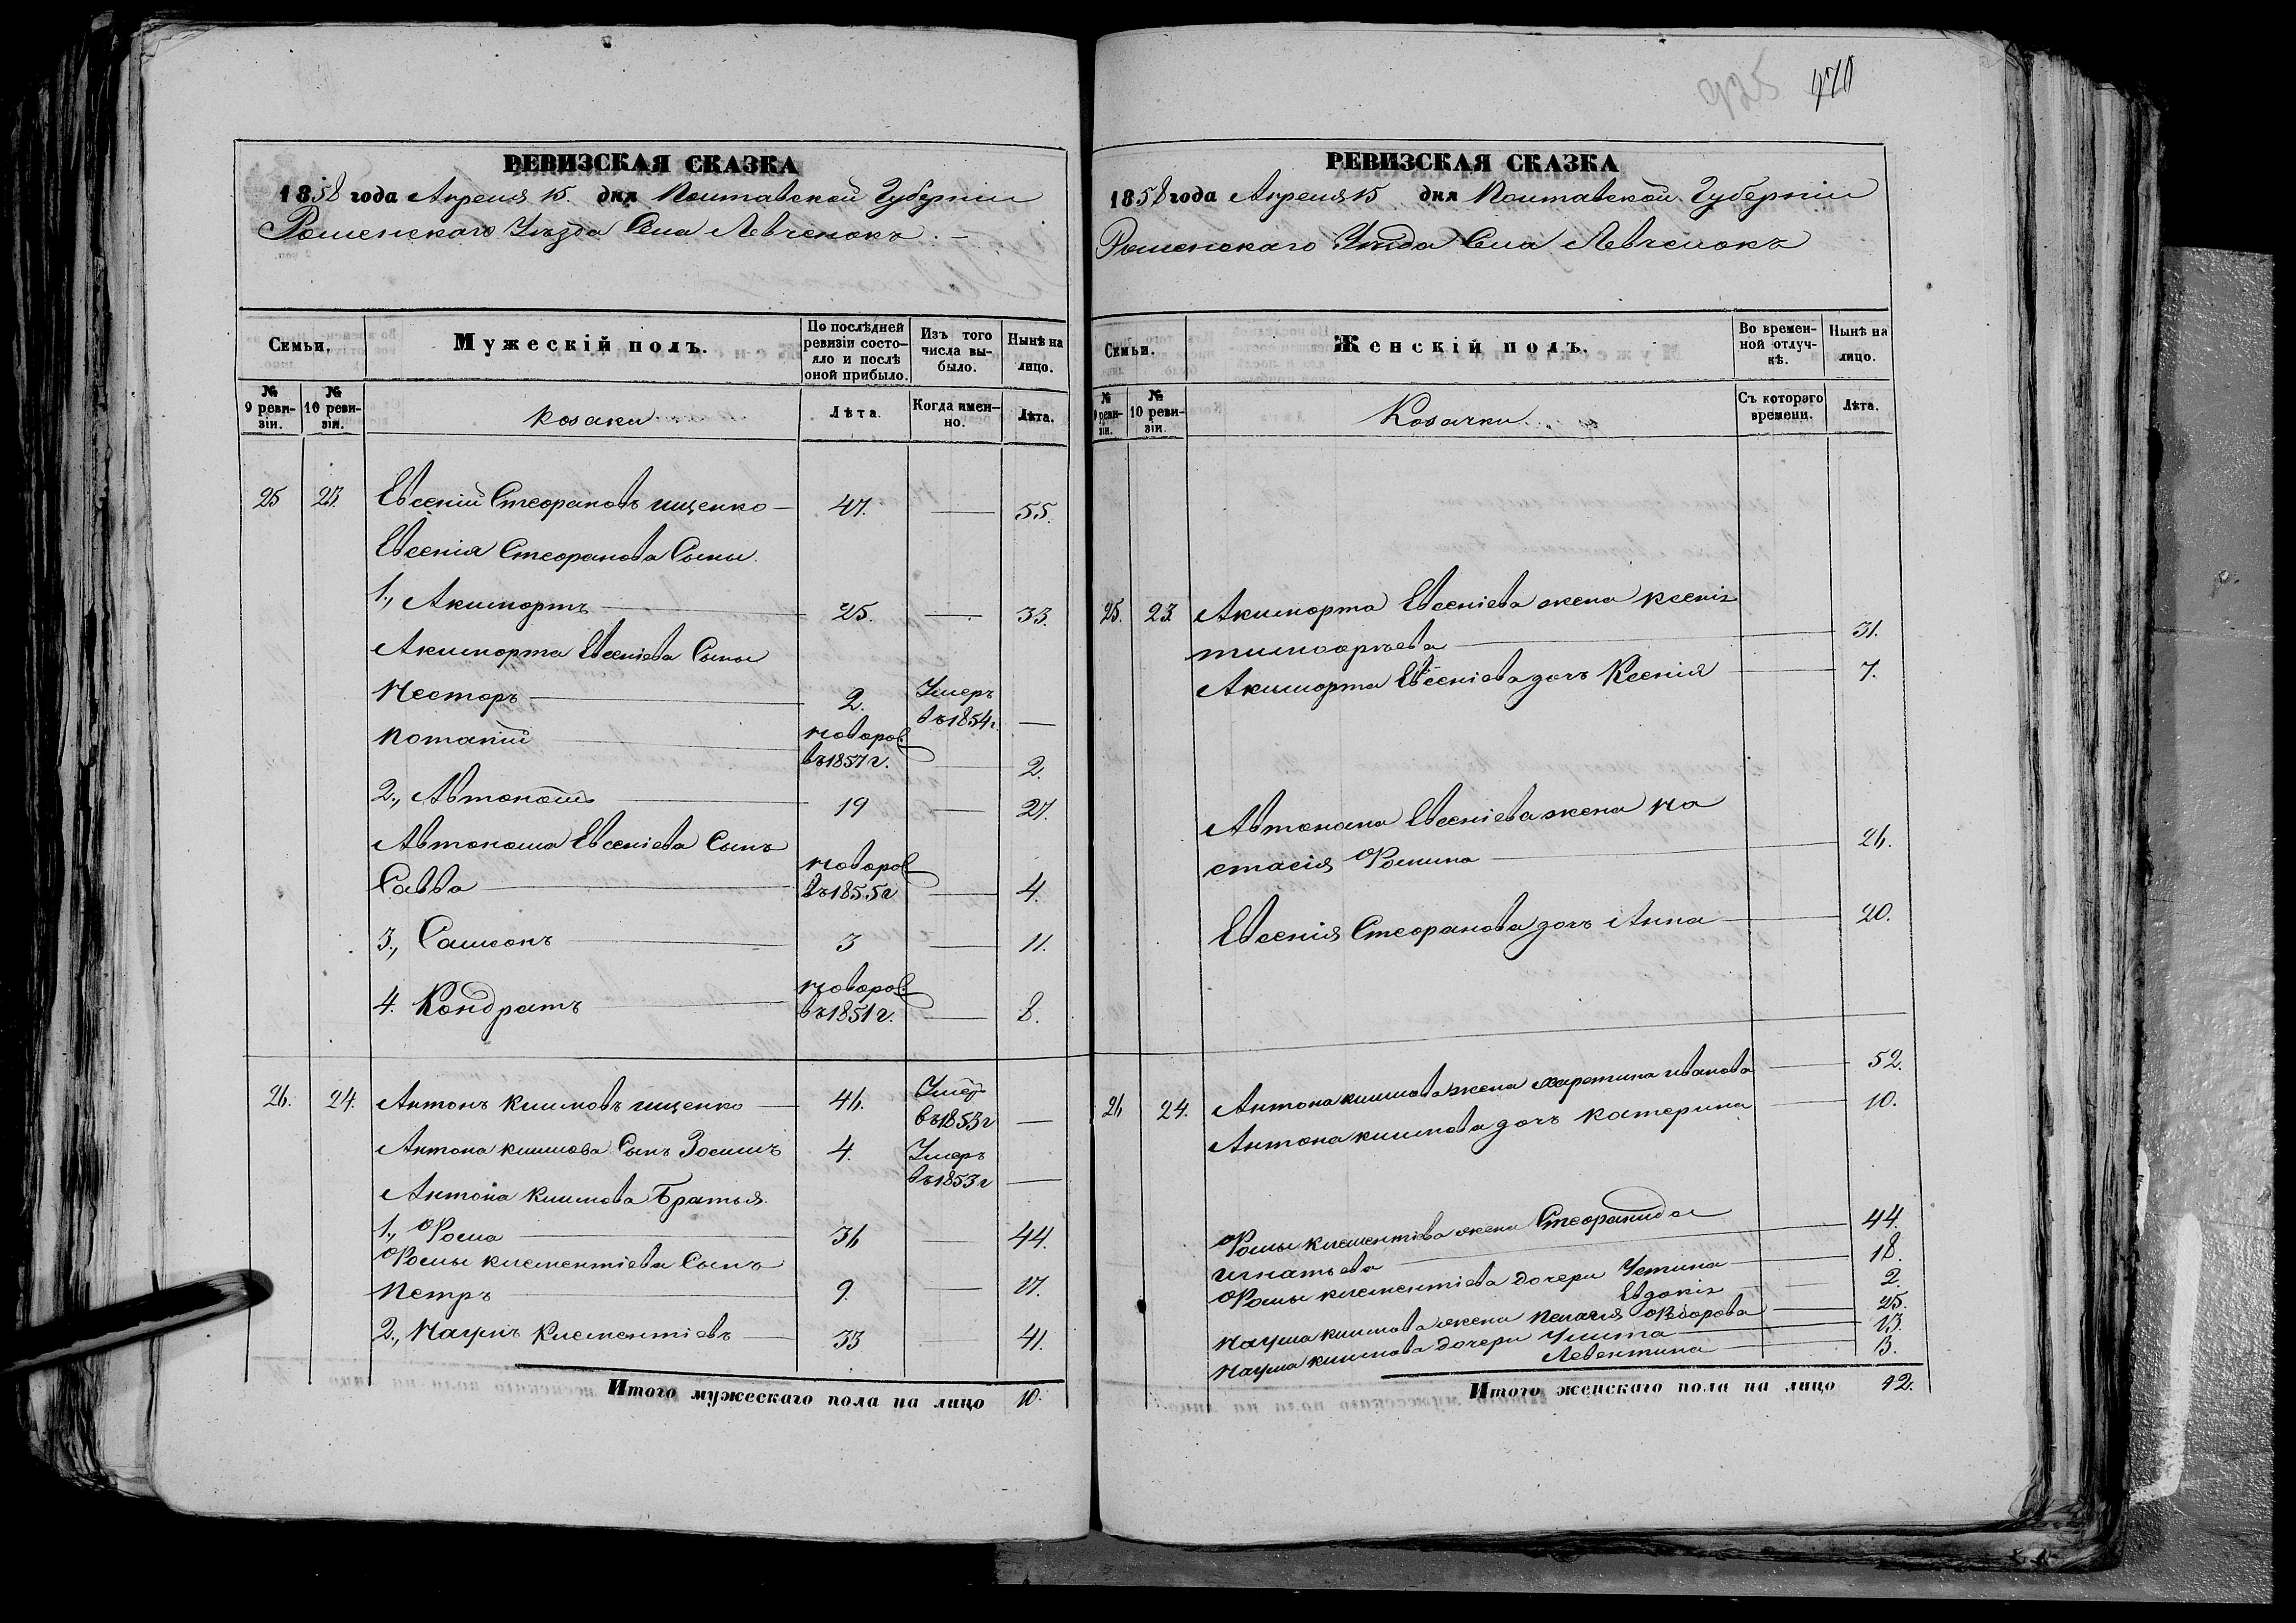 РЕВИЗСКАЯ СКАЗКА
1858 года Апреля 15. дня Полтавской Губерніи
Роменскаго Уѣзда Села Левченокъ. –
Семьи.
Мужескій полъ.
По послѣдней ревизіи состояло и послѣ оной прибыло.
Изъ того числа выбыло.
Нынѣ на лицо.
№ 9 ревизіи.
№ 10 ревизіи.
Козаки
Лѣта.
Когда именно.
Лѣта.
25 23. Евсеній Стефановъ ищенко – 47. — 55.
Евсенія Стефанова Сыны.
1., Акинфтъ — 25. — 33.
Акинфта Евсеніева Сыны
Несторъ — 2. Умеръ въ 1854 г. —
Потапій новорож. въ 1857 г. — 2.
2., Автономъ — 19 — 27.
Автонома Евсеніева Сынъ
Савва — новорож въ 1855 г — 4.
3., Самсонъ — 3 — 11.
4. Кондратъ — новорож. въ 1851 г. — 8.
26. 24. Антонъ климовъ ищенко — 46. Умеръ въ 1853 г —
Антона климова Сынъ Зосимъ 4. Умеръ въ 1853 г —
Антона Климова Братья.
1., Фома — 36 — 44.
Фомы клементіева Сынъ
Петръ — 9. — 17.
2., Наумъ Клементіевъ — 33 41.
Итого мужескаго пола на лицо 10.
925 970
РЕВИЗСКАЯ СКАЗКА
1858 года Апреля 15 дня Полтавской Губерніи
Роменскаго Уѣзда Села Левченокъ
Семьи.
Женскій полъ.
Во временной отлучкѣ.
Нынѣ на лицо.
№ 9 ревизіи.
№ 10 ревизіи.
Козачки.
Съ котораго времени.
Лѣта.
25. 23. Акинфта Евсеніева жена Ксенія
тимофѣева — 31.
Акинфта Евсеніева дочь Ксенія — 7.
Автонома Евсеніева жена На
стасія Фомина — 26.
Евсенія Стефанова дочь Анна — 20.
26 24. Антона климова жена Харетина иванова — 52.
Антона климова дочь катерина — 10.
Фомы клементіева жена Стефанида
игнатьева — 44.
Фомы клементіева дочери Устина — 18.
Евдокія 2.
Наума климова жена Пелагія Федорова — 25.
Наума климова дочери Улита — 13.
Левентина — 3.
Итого женскаго пола на лицо 12.